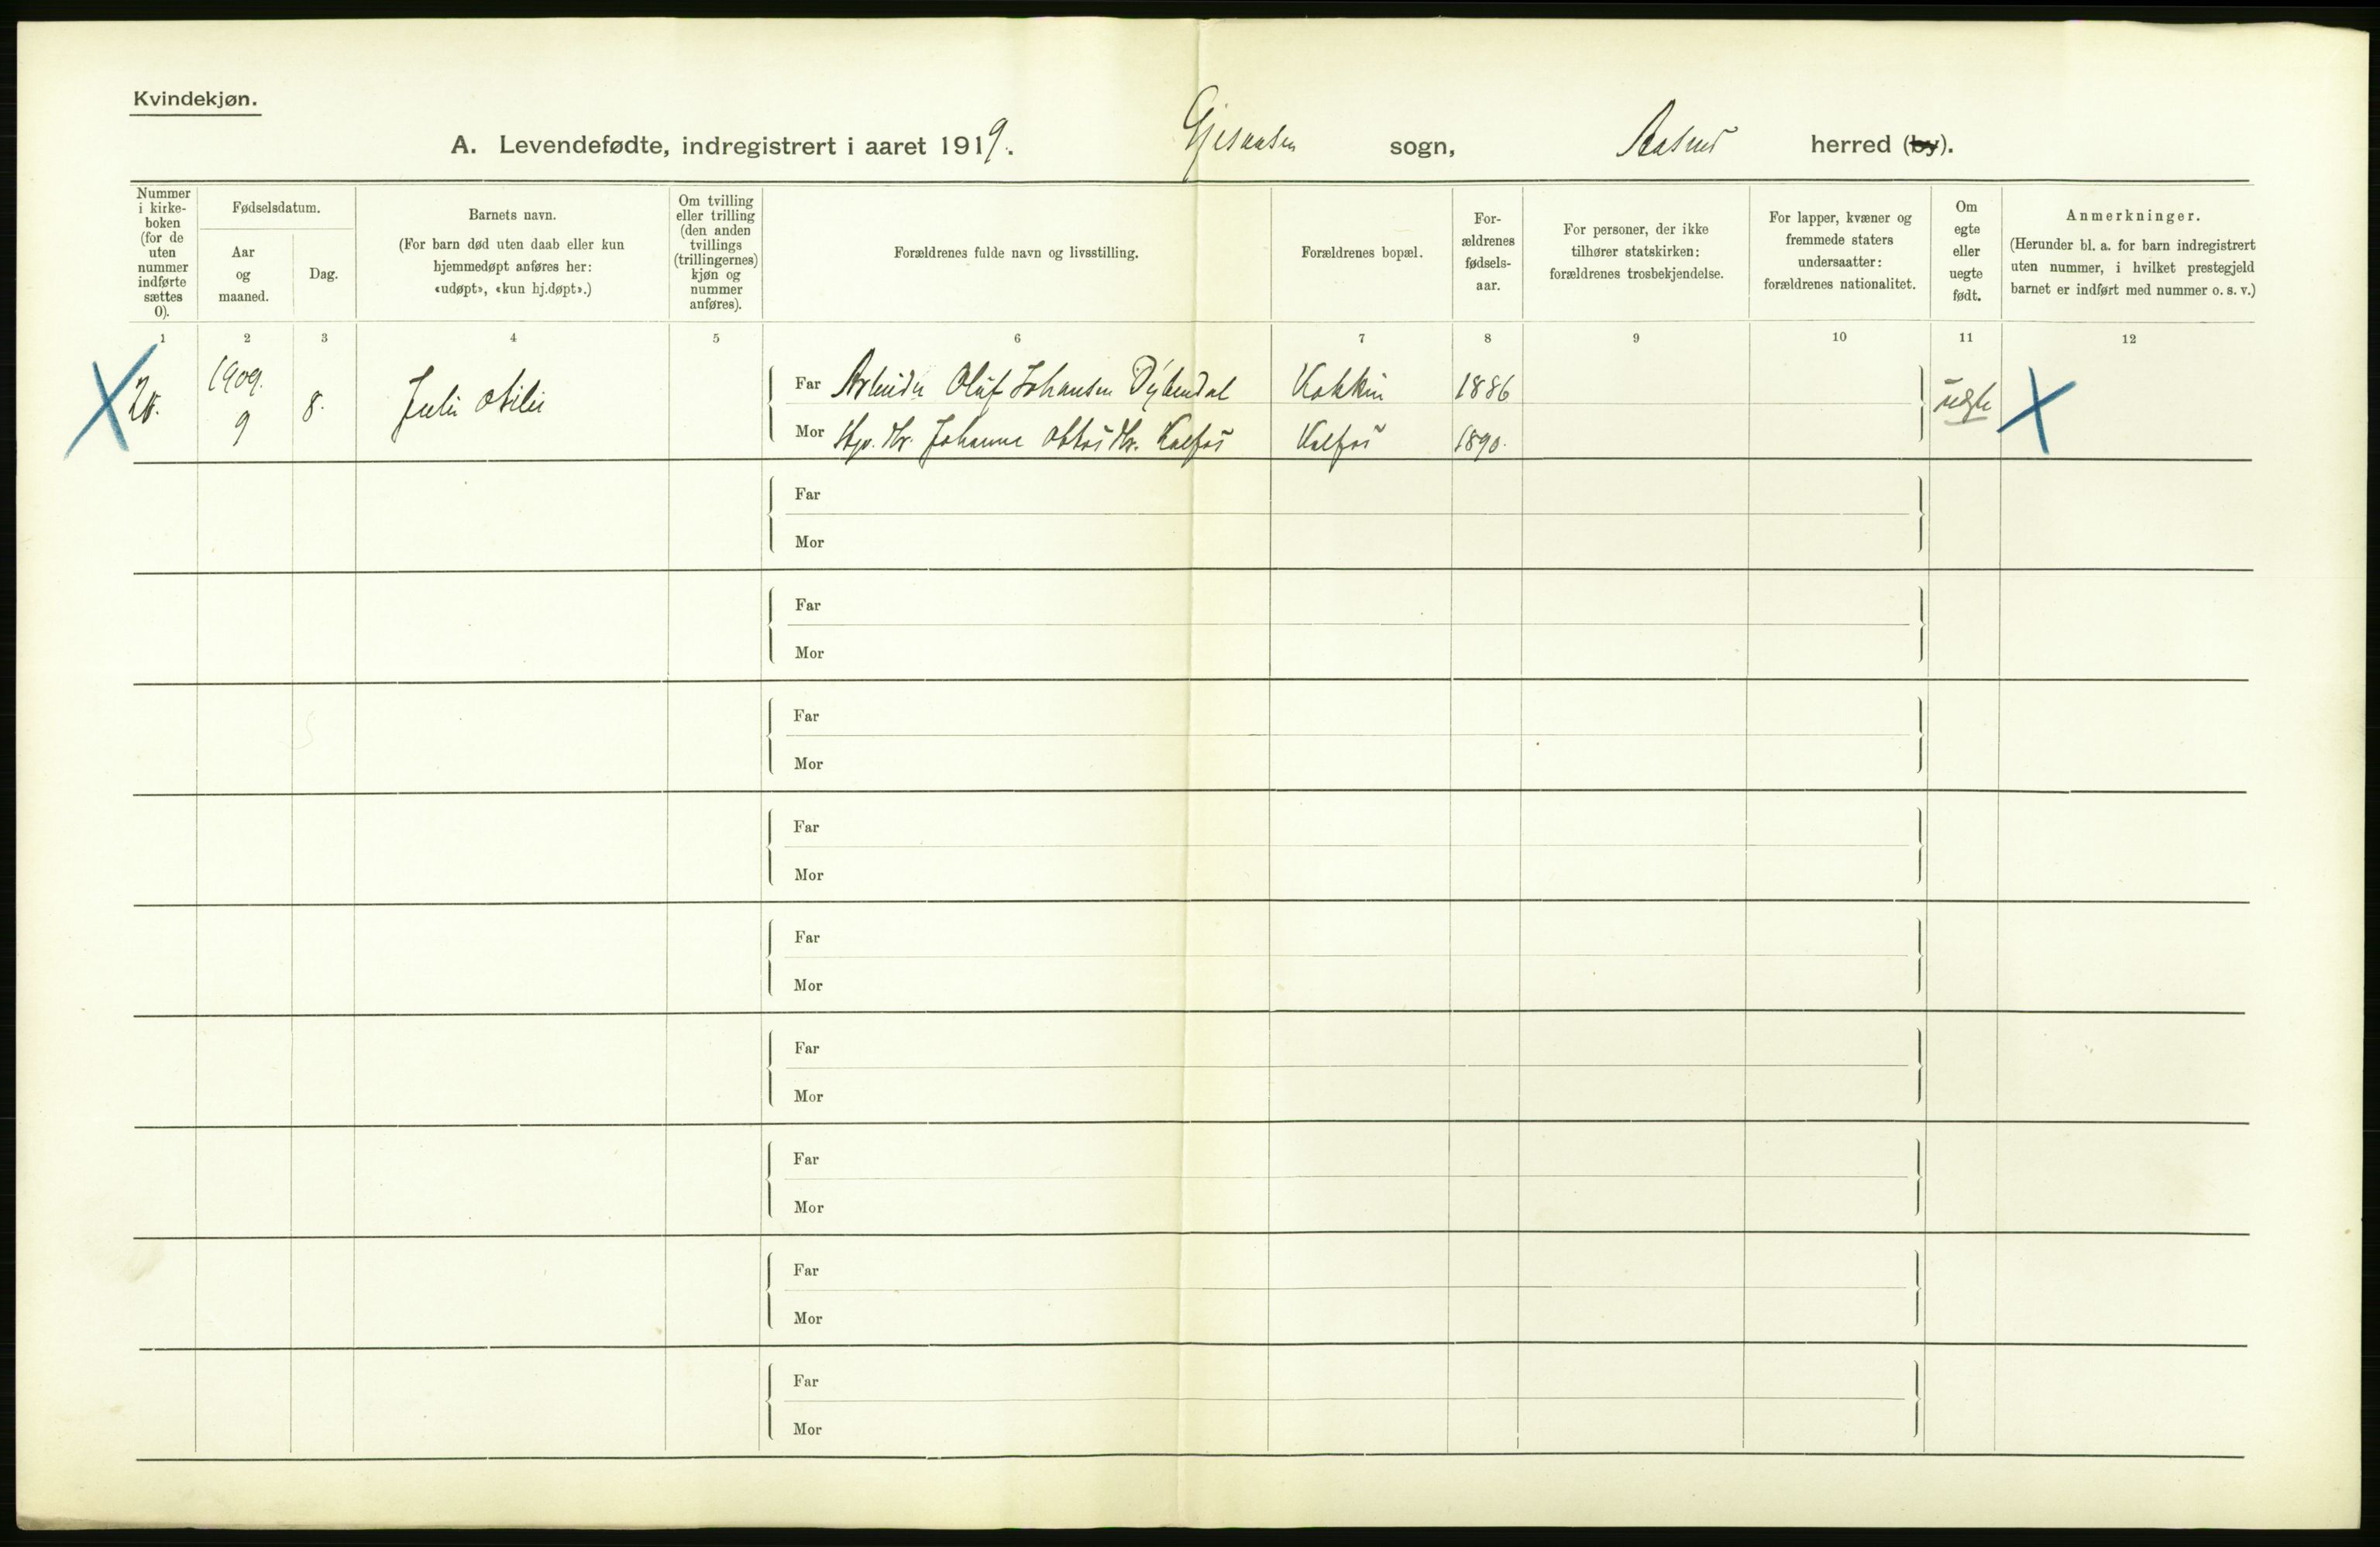 Kvindekjøn.
A. Levendefødte, indregistrert i aaret 1919. Gjesaasen sogn, Aasnes herred (by).
Nummer i kirke-boken (for de uten nummer indførte sættes 0).
Fødselsdatum.
Aar og maaned.
Dag.
Barnets navn.
(For barn død uten daab eller kun hjemmedøpt anføres her: «udøpt», «kun hj.døpt».)
Om tvilling eller trilling (den anden tvillings (trillingernes) kjøn og nummer anføres).
Forældrenes fulde navn og livsstilling.
Forældrenes bopæl.
For-ældrenes fødsels-aar.
For personer, der ikke tilhører statskirken: forældrenes trosbekjendelse.
For lapper, kvæner og fremmede staters undersaatter: forældrenes nationalitet.
Om egte eller uegte født.
Anmerkninger.
(Herunder bl. a. for barn indregistrert uten nummer, i hvilket prestegjeld barnet er indført med nummer o. s. v.)
1 2 3 4 5 6 7 8 9 10 11 12
1909. 9 8. Julie Otilie
Far Arbeider Oluf Johansen Dybendal Kokkin 1886 uegte
Mor Johanne Kalfos Kalfos 1890.
Far
Mor
Far
Mor
Far
Mor
Far
Mor
Far
Mor
Far
Mor
Far
Mor
Far
Mor
Far
Mor